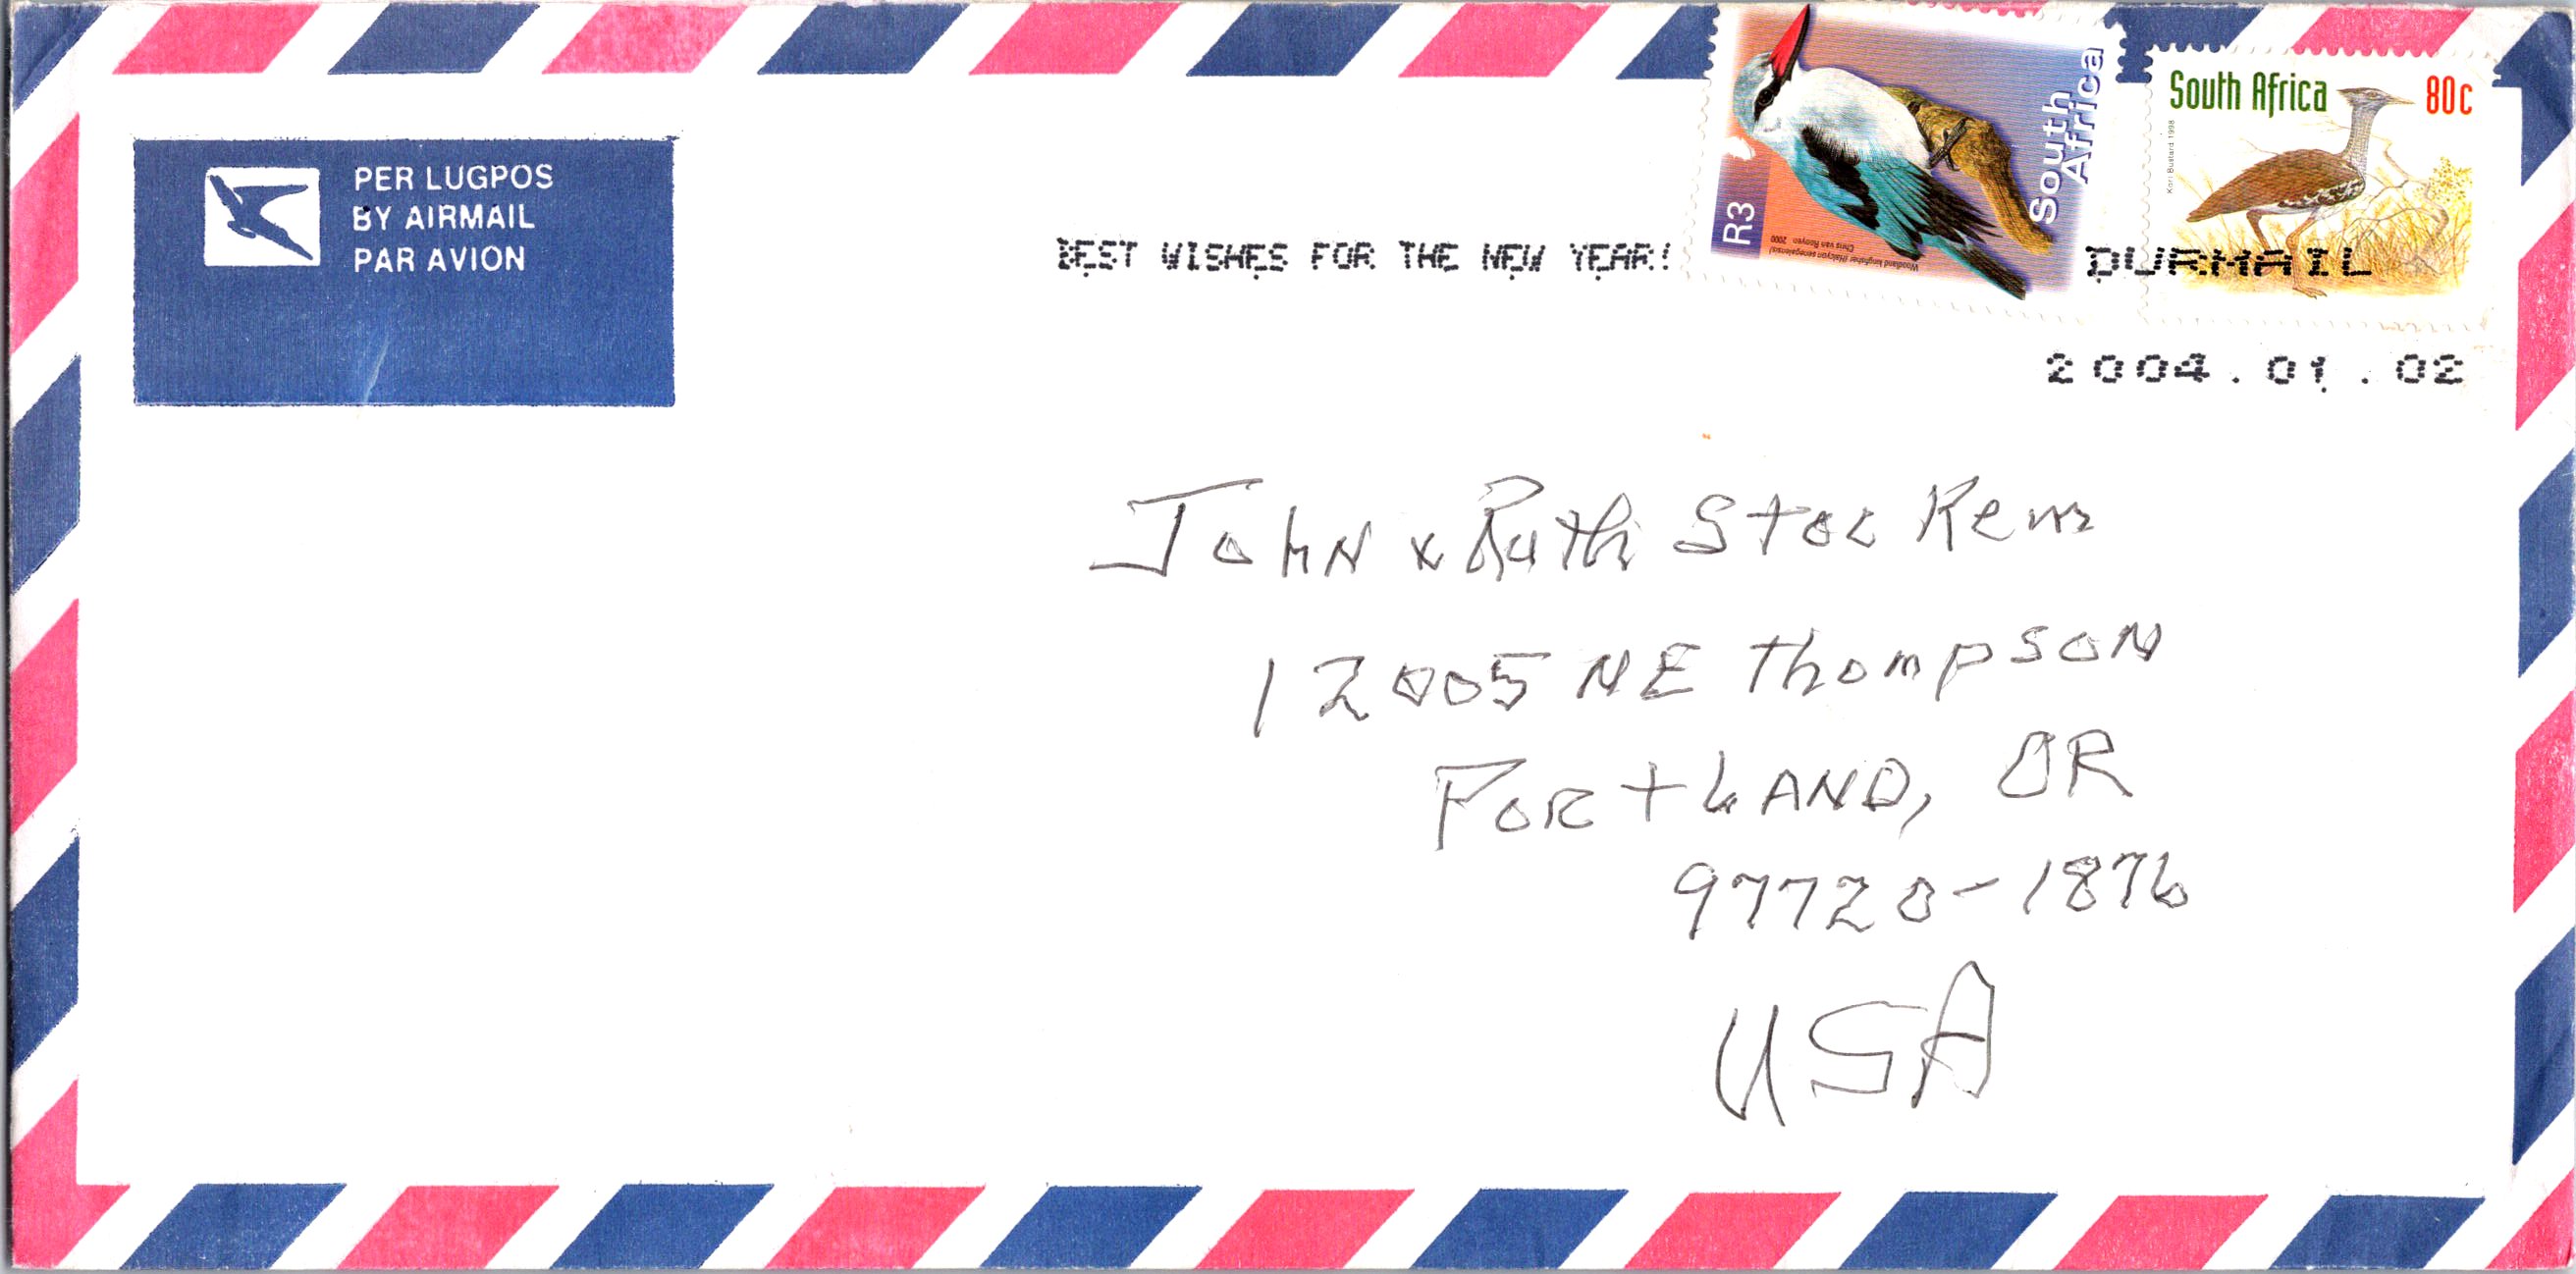 PER LUGPOS
BY AIRMAIL
PAR AVION
BEST WISHES FOR THE NEW YEAR!
R3
South Africa
Woodland kingfisher (Halcyon senegalensis)
Chris van Rooyen 2000
South Africa 80c
Kori Bustard 1998
DURMAIL
2004.01.02
John & Ruth Stoc Kens
12005 NE Thompson
PORTLAND, OR
97720-1876
USA